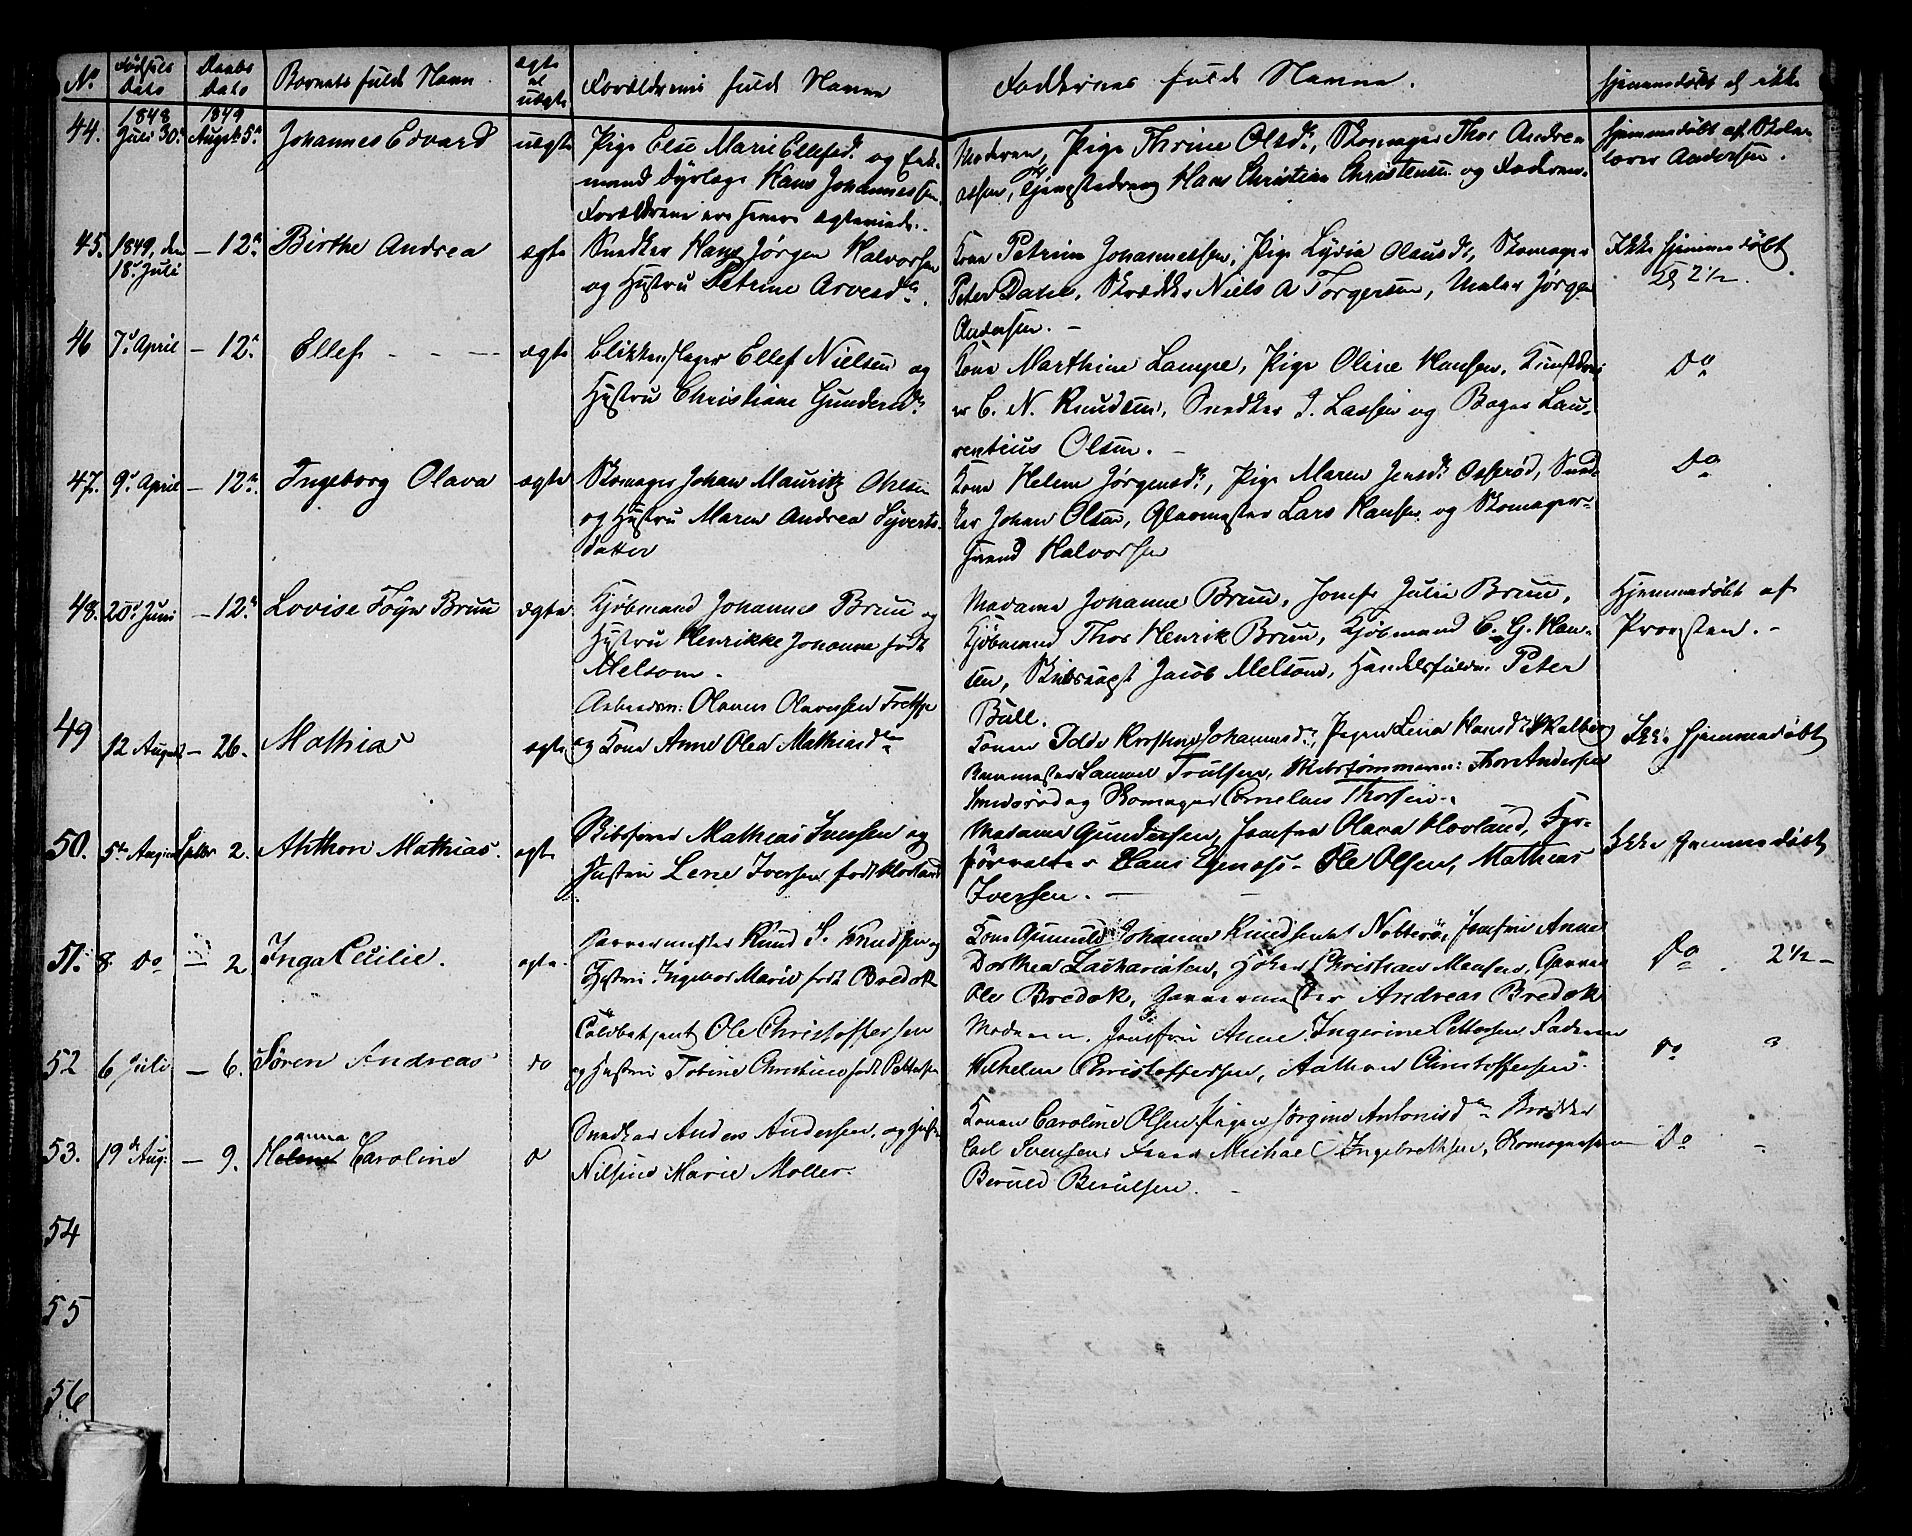 No Fødsels Dato Daabs Dato Barnets fulde Navn ægte el uægte Forældrenes fulde Navne Faddernes fulde Navne. Hjemmedøbt el ikke
44. 1848 Juli 30. 1849 August 5te Johannes Edvard uægte Pige Else Marie Ellefsd. og Enke-
mand Hans Johannessen.
Forældrene
Moderen, Pige Thrine Olsd., Skomager Thor Andrea
assen, Tjenestedreng Hans Christian Christensen og Faderen.
Hjemmedøbt af Skole-
lærer Andersen.
45. 1849, den 18. Juli – 12te Birthe Andrea ægte Snedker Hans Jørgen Halvorsen
og Hustru Petrine Arvesdtr.
Kone Petrine Johannessen, Pige Lydia Olausdr, Skomager
Peter Daniel, Skrædder Niels A Torgersen, Maler Jørgen
Andersen. –
Ikke hjemmedøbt
2 1/2.
46 7de April – 12te Ellef – – – ægte Blikkenslager Ellef Nielsen og
Hustru Christiane Gundersd.
Kone Marthine Lampe, Pige Oline Hansen,
C. N. Knudsen, Snedker J. Lassen og Bager Lau-
rentius Olsen. –
Do
47. 9de April – 12te Ingeborg Olava ægte Skomager Johan Mauritz Ohlsen
og Hustru Maren Andrea Syverts-
datter
Kone Helene Jørgensd., Pige Maren Jensd. Ostrød, Sned-
ker Johan Olsen, Glarmester Lars Hansen og Skomager-
svend Halvorsen
Do
48. 20de Juni – 12te Lovise Foyn Bruu ægte Kjøbmand Johannes Bruu og
Hustru Henrikke Johanne født
Melsom.
Madame Johanne Bruu, Jomfr Julie Bruu,
Kjøbmand Thor Henrik Bruu, Kjøbmand C. G. Han-
sen, Jacob Melsom, Handelsfuldm. Peter
Bull.
Hjemmedøbt af
Provsten. –
49 12 August – 26. Mathias ægte Arbeidsm: Olaves Olavessen
og Kone Anne Olea Mathiasdtr
Konen Idde Kirstine Johannesdr, Pigen Lena Hansdr Skalberg
Samuel Trulsen, Skibstømmerm: Thore Andersen
og Skomager Cornelius Thorsen.
Ikke hjemmedøbt
50. 5te August Septbr 2. Ahthon Mathias. ægte Skibsfører Mathias Iversen og
Hustru Lene Iversen født Hovland
Madame Gundersen, Jomfru Olava Hovland, Fyr-
forvalter Hans – Ole Olsen, Mathias
Iversen. –
Ikke hjemmedøbt
51. 8. Do – 2 Inga Cecilie. ægte. Garvermester Knud S. Knudsen og
Hustru Ingebor Marie født Bredok
Kone Gunild Johanne Knudsen Nøtterø, Jomfru Anne
Dorthea Zachariasen, Høker Christian Monsen, Garver
Ole Bredok, Garvermester Andreas Bredok
Do 2 1/2 –
52 6 Juli – 6. Søren Andreas do Toldbetjent Ole Christoffersen
og Hustru Tobine Christine født Pettersen
Moderen. Jomfru Anne Ingerine Pettersen Faderen
Wilhelm Christoffersen, Anthon Christoffersen.
do "
53. 19de Aug: – 9. Helene anna Caroline do Snedker Anders Andersen, og Hust
Nilsine Marie Møller.
Konen Caroline Olsen, Pigen Jørgine Antonisdtr
Carl Svensen, Michael Ingebrethsen, Skomagersvend
Beruld Berulsen. –
Do –
54
55
56